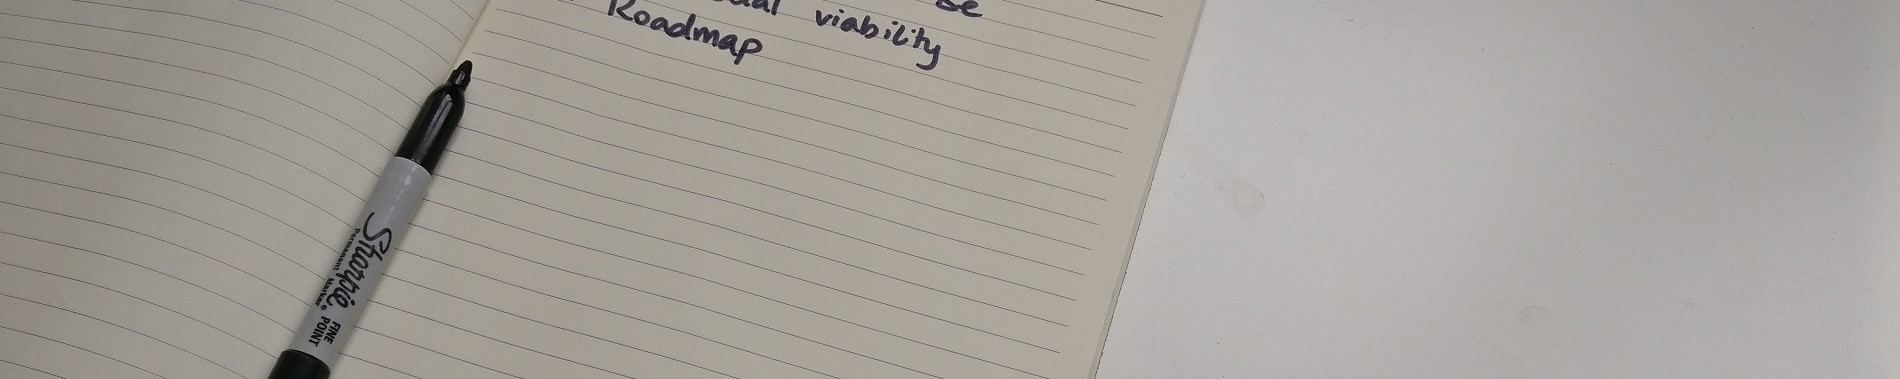 viability
Roadmap
Sharpie
Permanent Marker
FINE
POINT